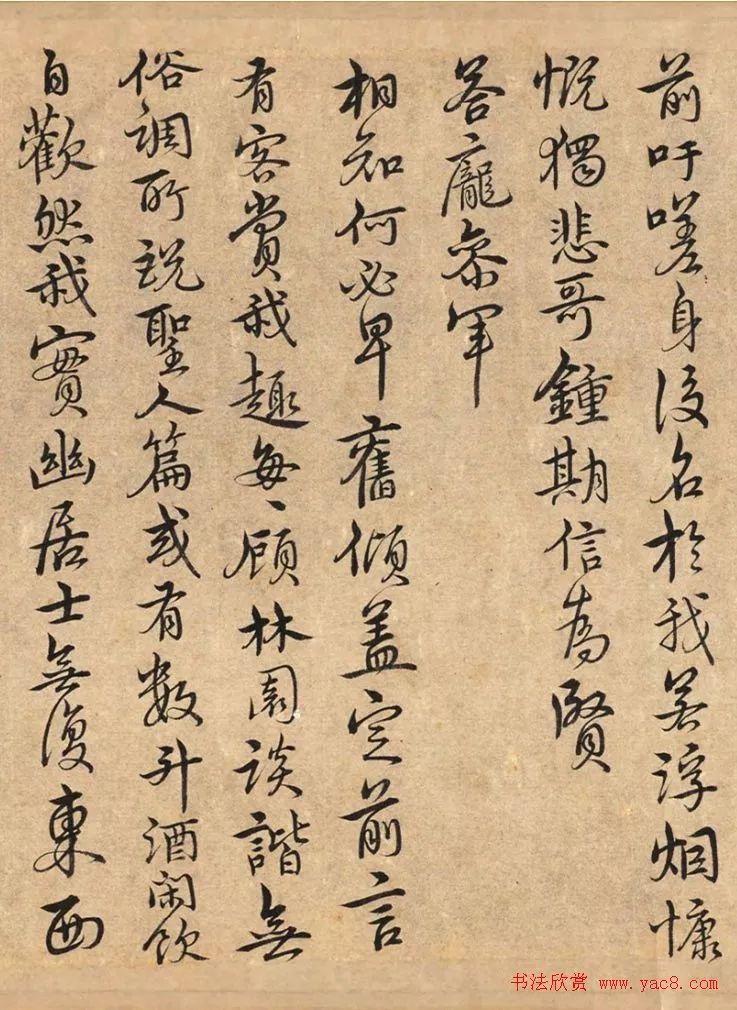 前吁嗟身後名於我若浮烟慷
慨獨悲哥鍾期信為賢
答龐参军
相知何必早舊傾盖定前言
有客賞我趣每〻顧林園談諧無
俗調所說聖人篇或有數升酒閑飲
自歡然我實幽居士無復東西
书法欣赏 www.yac8.com